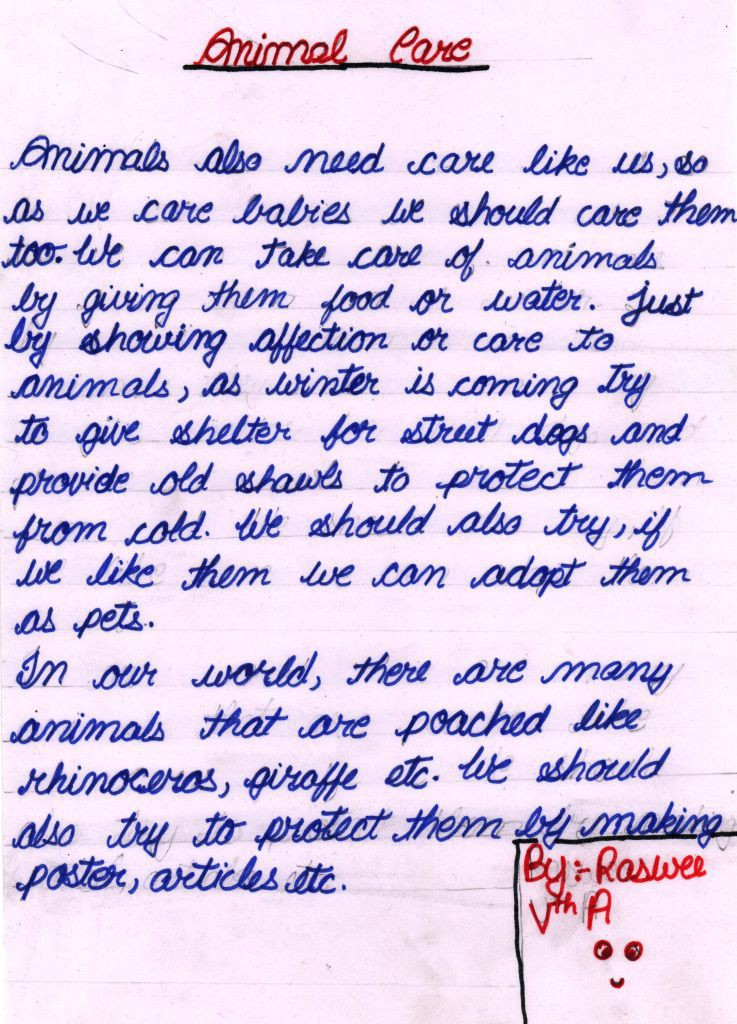 Animal Care
Animals also need care like us, so
as we care babies we should care them
too. We can take care of animals
by giving them food or water. Just
by showing affection or care to
animals, as winter is coming try
to give shelter for street dogs and
provide old shawls to protect them
from cold. We should also try, if
we like them we can adopt them
as pets.
In our world, there are many
animals that are poached like
rhinoceros, giraffe etc. We should
also try to protect them by making
poster, articles etc.
By:- Raswee
Vth A